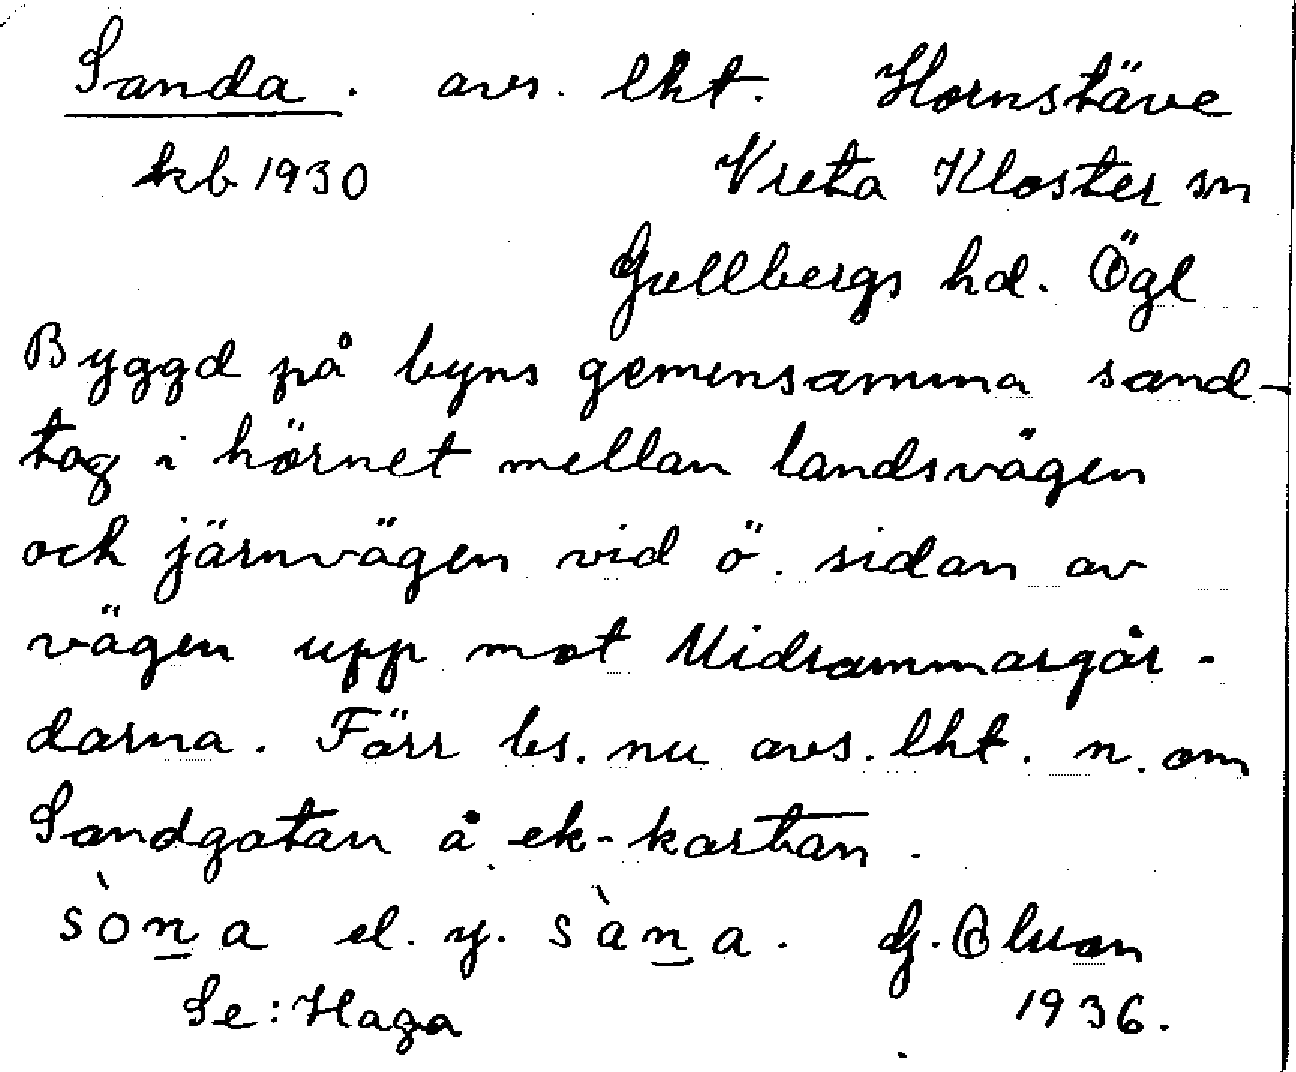 Sanda. avs. lht. Hornstäve
kb 1930 Vreta Kloster sn
Gullbergs hd. Ögl
Byggd på byns gemensamma sand-
tag i hörnet mellan landsvägen
och järnvägen vid ö. sidan av
vägen upp mot Midsommargår-
darna. Förr bs. nu avs. lht. n. om
Sandgatan å ek-kartan.
sòna el. y. sàna. G.
Se: Haga 1936.